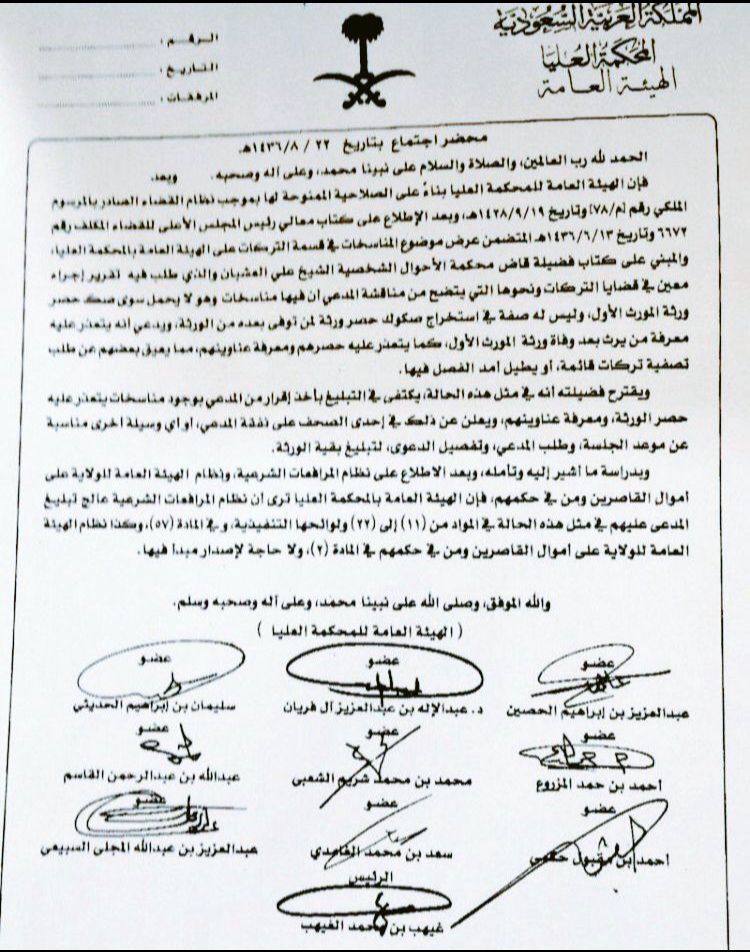 المملكة العربية السعودية
المحكمة العليا
الهيئة العامة
الرقم :
التاريخ :
المرفقات :
محضر اجتماع بتاريخ ٢٢ / ٨ / ١٤٣٦هـ
الحمد لله رب العالمين، والصلاة والسلام على نبينا محمد، وعلى آله وصحبه. وبعد.
فإن الهيئة العامة للمحكمة العليا بناءً على الصلاحية الممنوحة لها بموجب نظام القضاء الصادر بالمرسوم
الملكي رقم [م/٧٨] وتاريخ ١٤٢٨/٩/١٩هـ، وبعد الإطلاع على كتاب معالي رئيس المجلس الأعلى للقضاء المكلف رقم
٦٦٧٢ وتاريخ ١٤٣٦/٦/١٣هـ المتضمن عرض موضوع المناسخات في قسمة التركات على الهيئة العامة بالمحكمة العليا،
والمبني على كتاب فضيلة قاض محكمة الأحوال الشخصية الشيخ علي العشبان والذي طلب فيه تقرير إجراء
معين في قضايا التركات ونحوها التي يتضح من مناقشة المدعي أن فيها مناسخات وهو لا يحمل سوى صك حصر
ورثة المورث الأول، وليس له صفة في استخراج صكوك حصر ورثة لمن توفى بعده من الورثة، ويدعي أنه يتعذر عليه
معرفة من يرث بعد وفاة ورثة المورث الأول، كما يتعذر عليه حصرهم ومعرفة عناوينهم، مما يعيق بعضهم عن طلب
تصفية تركات قائمة، أو يطيل أمد الفصل فيها.
ويقترح فضيلته أنه في مثل هذه الحالة، يكتفى في التبليغ بأخذ إقرار من المدعي بوجود مناسخات يتعذر عليه
حصر الورثة، ومعرفة عناوينهم، ويعلن عن ذلك في إحدى الصحف على نفقة المدعي، أو أي وسيلة أخرى مناسبة
عن موعد الجلسة، وطلب المدعي، وتفصيل الدعوى، لتبليغ بقية الورثة.
وبدراسة ما أشير إليه وتأمله، وبعد الاطلاع على نظام المرافعات الشرعية، ونظام الهيئة العامة للولاية على
أموال القاصرين ومن في حكمهم، فإن الهيئة العامة بالمحكمة العليا ترى أن نظام المرافعات الشرعية عالج تبليغ
المدعى عليهم في مثل هذه الحالة في المواد من (١١) إلى (٢٢) ولوائحها التنفيذية، و في المادة (٥٧)، وكذا نظام الهيئة
العامة للولاية على أموال القاصرين ومن في حكمهم في المادة (٢)، ولا حاجة لإصدار مبدأ فيها.
والله الموفق، وصلى الله على نبينا محمد، وعلى آله وصحبه وسلم.
( الهيئة العامة للمحكمة العليا )
عضو عضو عضو
عبدالعزيز بن إبراهيم الحصين د. عبدالإله بن عبدالعزيز آل فريان سليمان بن إبراهيم الحديثي
عضو عضو عضو
أحمد بن حمد المزروع محمد بن محمد شريم الشعبي عبدالله بن عبدالرحمن القاسم
عضو عضو عضو
أحمد بن مقبول حكمي سعد بن محمد الغامدي عبدالعزيز بن عبدالله المجلي السبيعي
الرئيس
غيهب بن محمد الغيهب